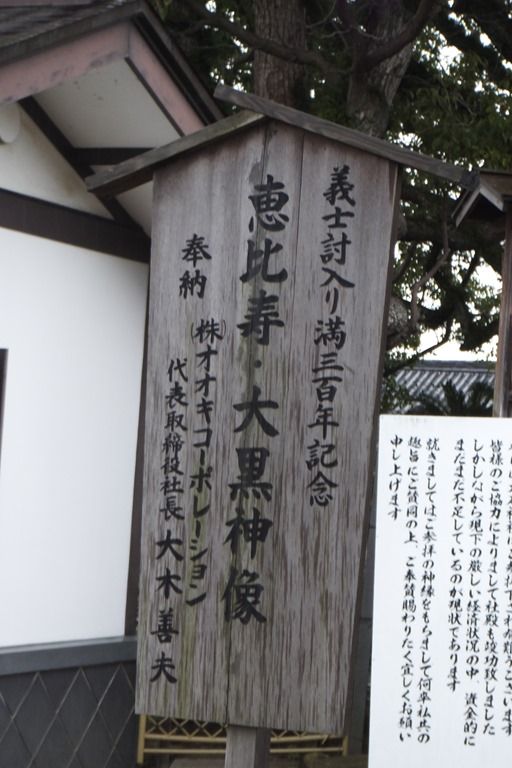 義士討入り満三百年記念
恵比寿・大黒神像
奉納
(株)オオキコーポレーション
代表取締役社長 大木善夫
皆様のご協力によりまして社殿も竣功致しました
しかしながら現下の厳しい経済状況の中、資金的に
まだまだ不足しているのが現状であります
就きましてはご参拝の神縁をもちまして何卒仏共の
趣旨にご賛同の上、ご奉賛賜わりたく宜しくお願い
申し上げます